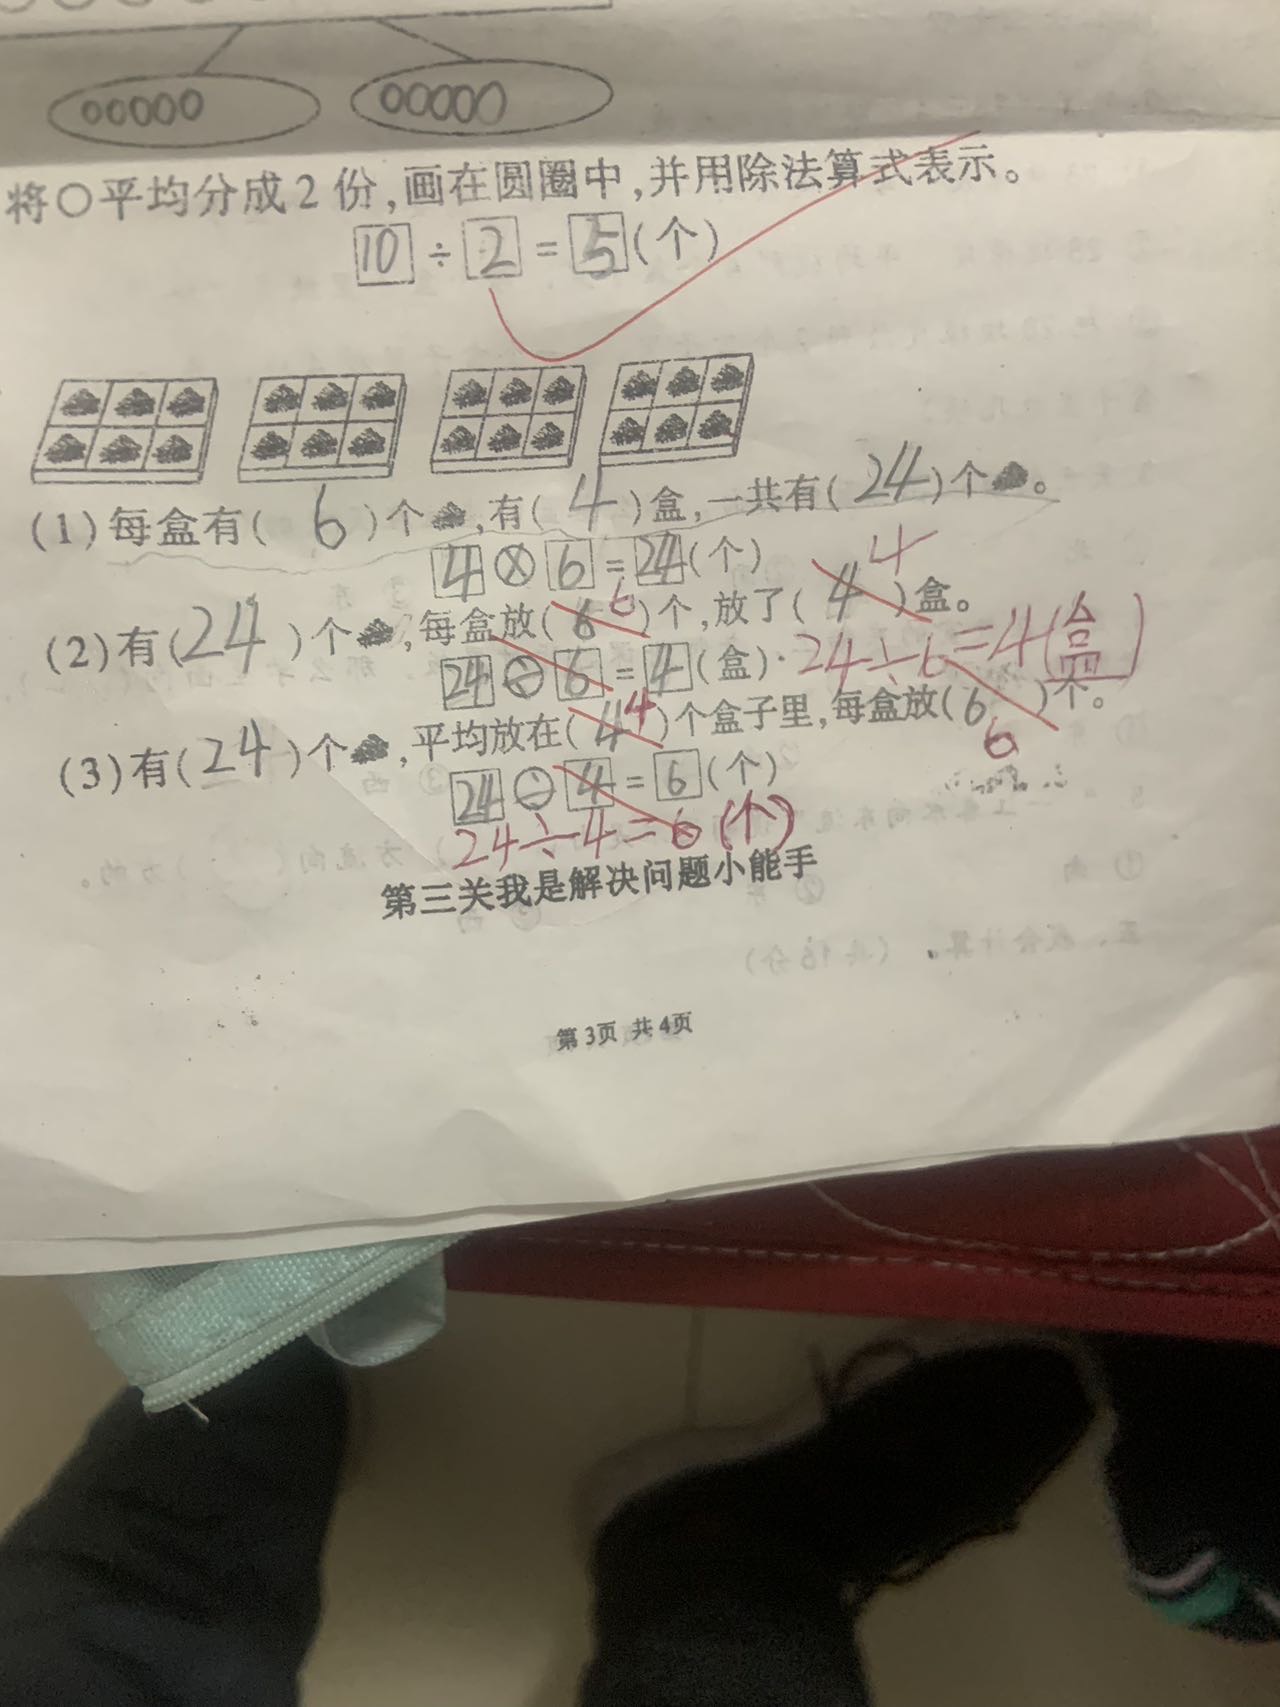 将○平均分成2份,画在圆圈中,并用除法算式表示。
10÷2=5(个)
(1)每盒有(6)个,有(4)盒,一共有(24)个。
4×6=24(个)
4
(2)有(24)个,每盒放(6)6个,放了(4)盒。
24÷6=4(盒) 24÷6=4(盒)
(3)有(24)个,平均放在(4)4个盒子里,每盒放(6)个。
6
24÷4=6(个)
24÷4=6(个)
第三关我是解决问题小能手
第3页 共4页